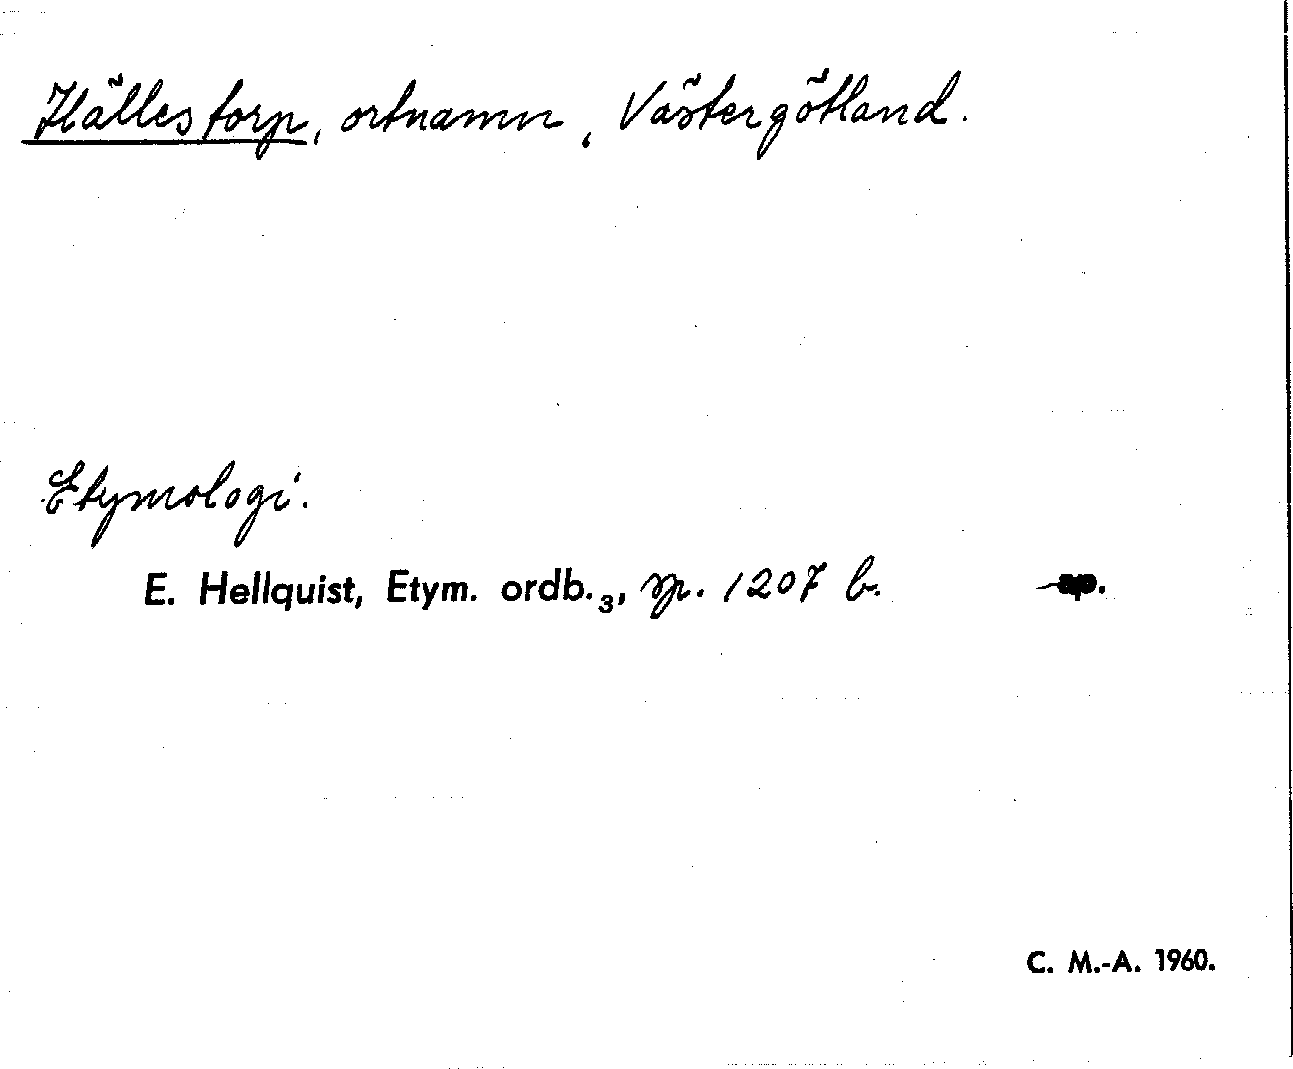 Hällestorp, ortnamn, Västergötland.
Etymologi.
E. Hellquist, Etym. ordb.₃, sp. 1207 b. sp.
C. M.-A. 1960.